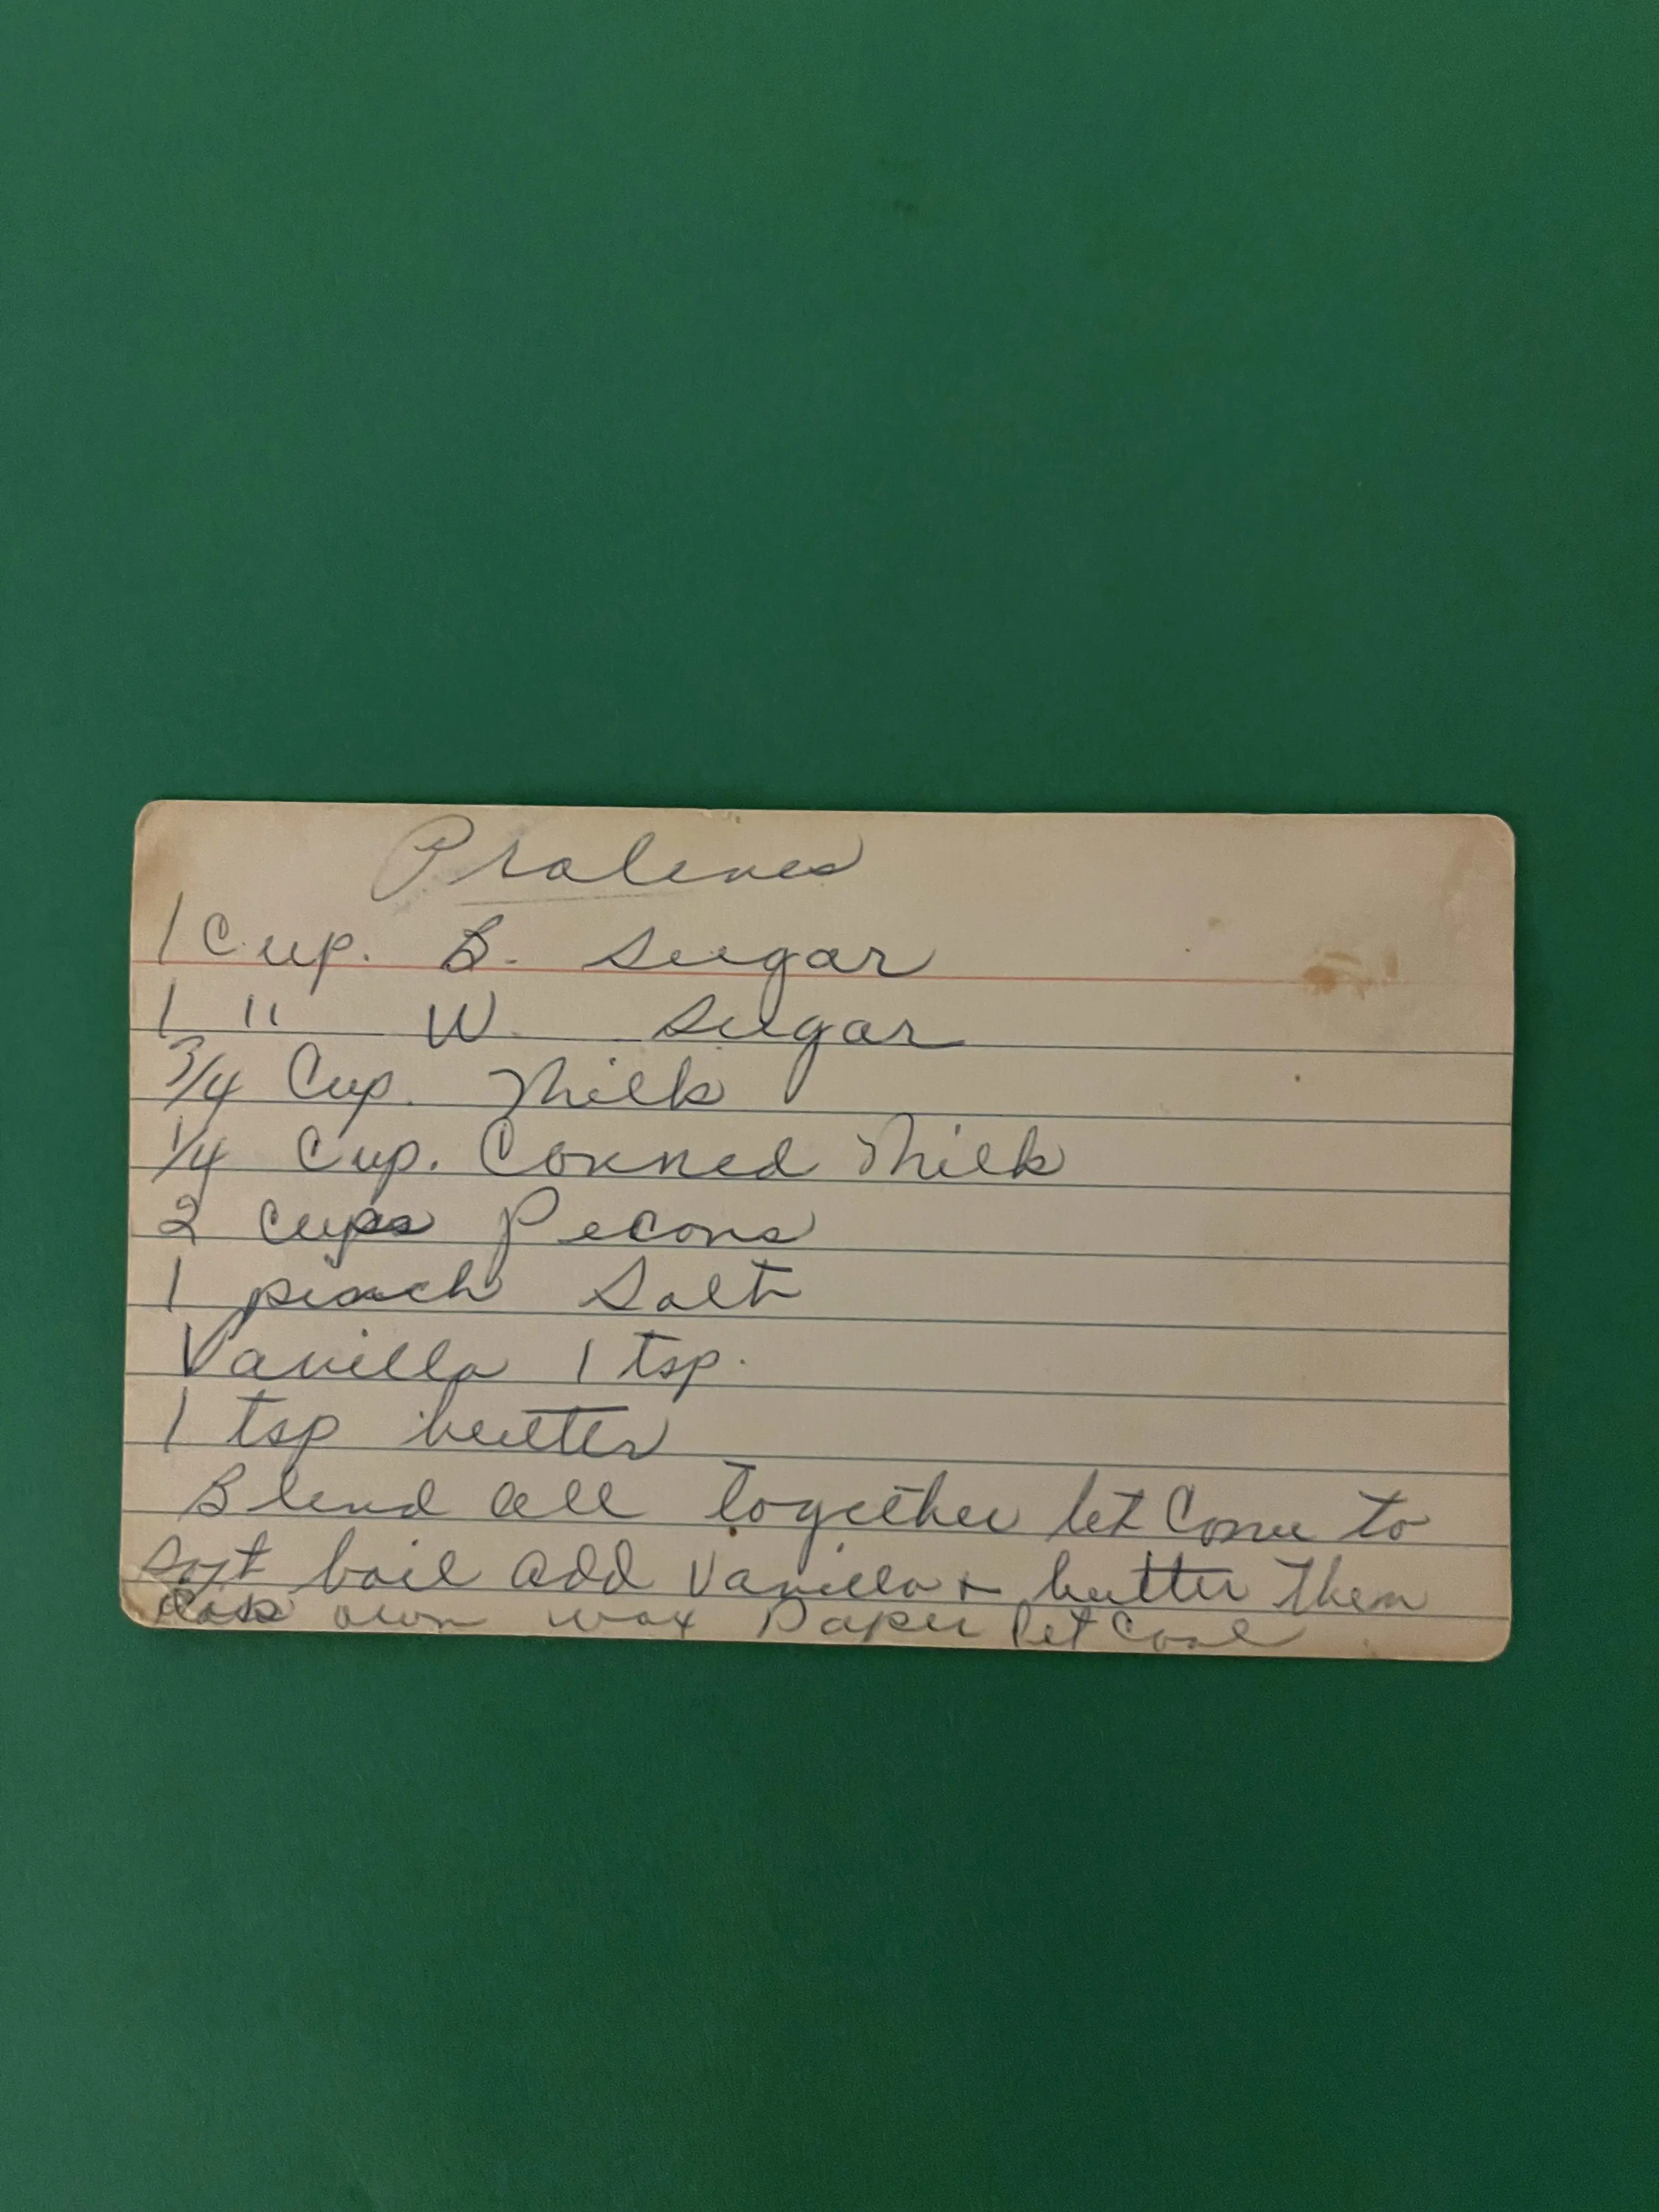 Pralenes
1 Cup. B. Sugar
1 " W. Sugar
3/4 Cup. Milk
1/4 Cup. Conned Milk
2 cups Pecons
1 pinch Salt
Vanilla 1 tsp.
1 tsp butter
Blend all together let Come to
soft boil add Vanilla + butter then
own wax Paper Let Cool